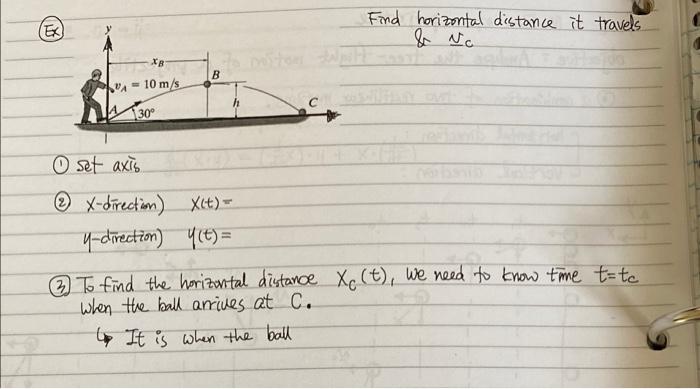 Ex
Find horizontal distance it travels
& v_C
y
x_B
B
v_A = 10 m/s
A
30°
h
C
① set axis
② x-direction) x(t)=
y-direction) y(t)=
③ To find the horizontal distance x_C(t), we need to know time t=t_C
when the ball arrives at C.
↳ It is when the ball